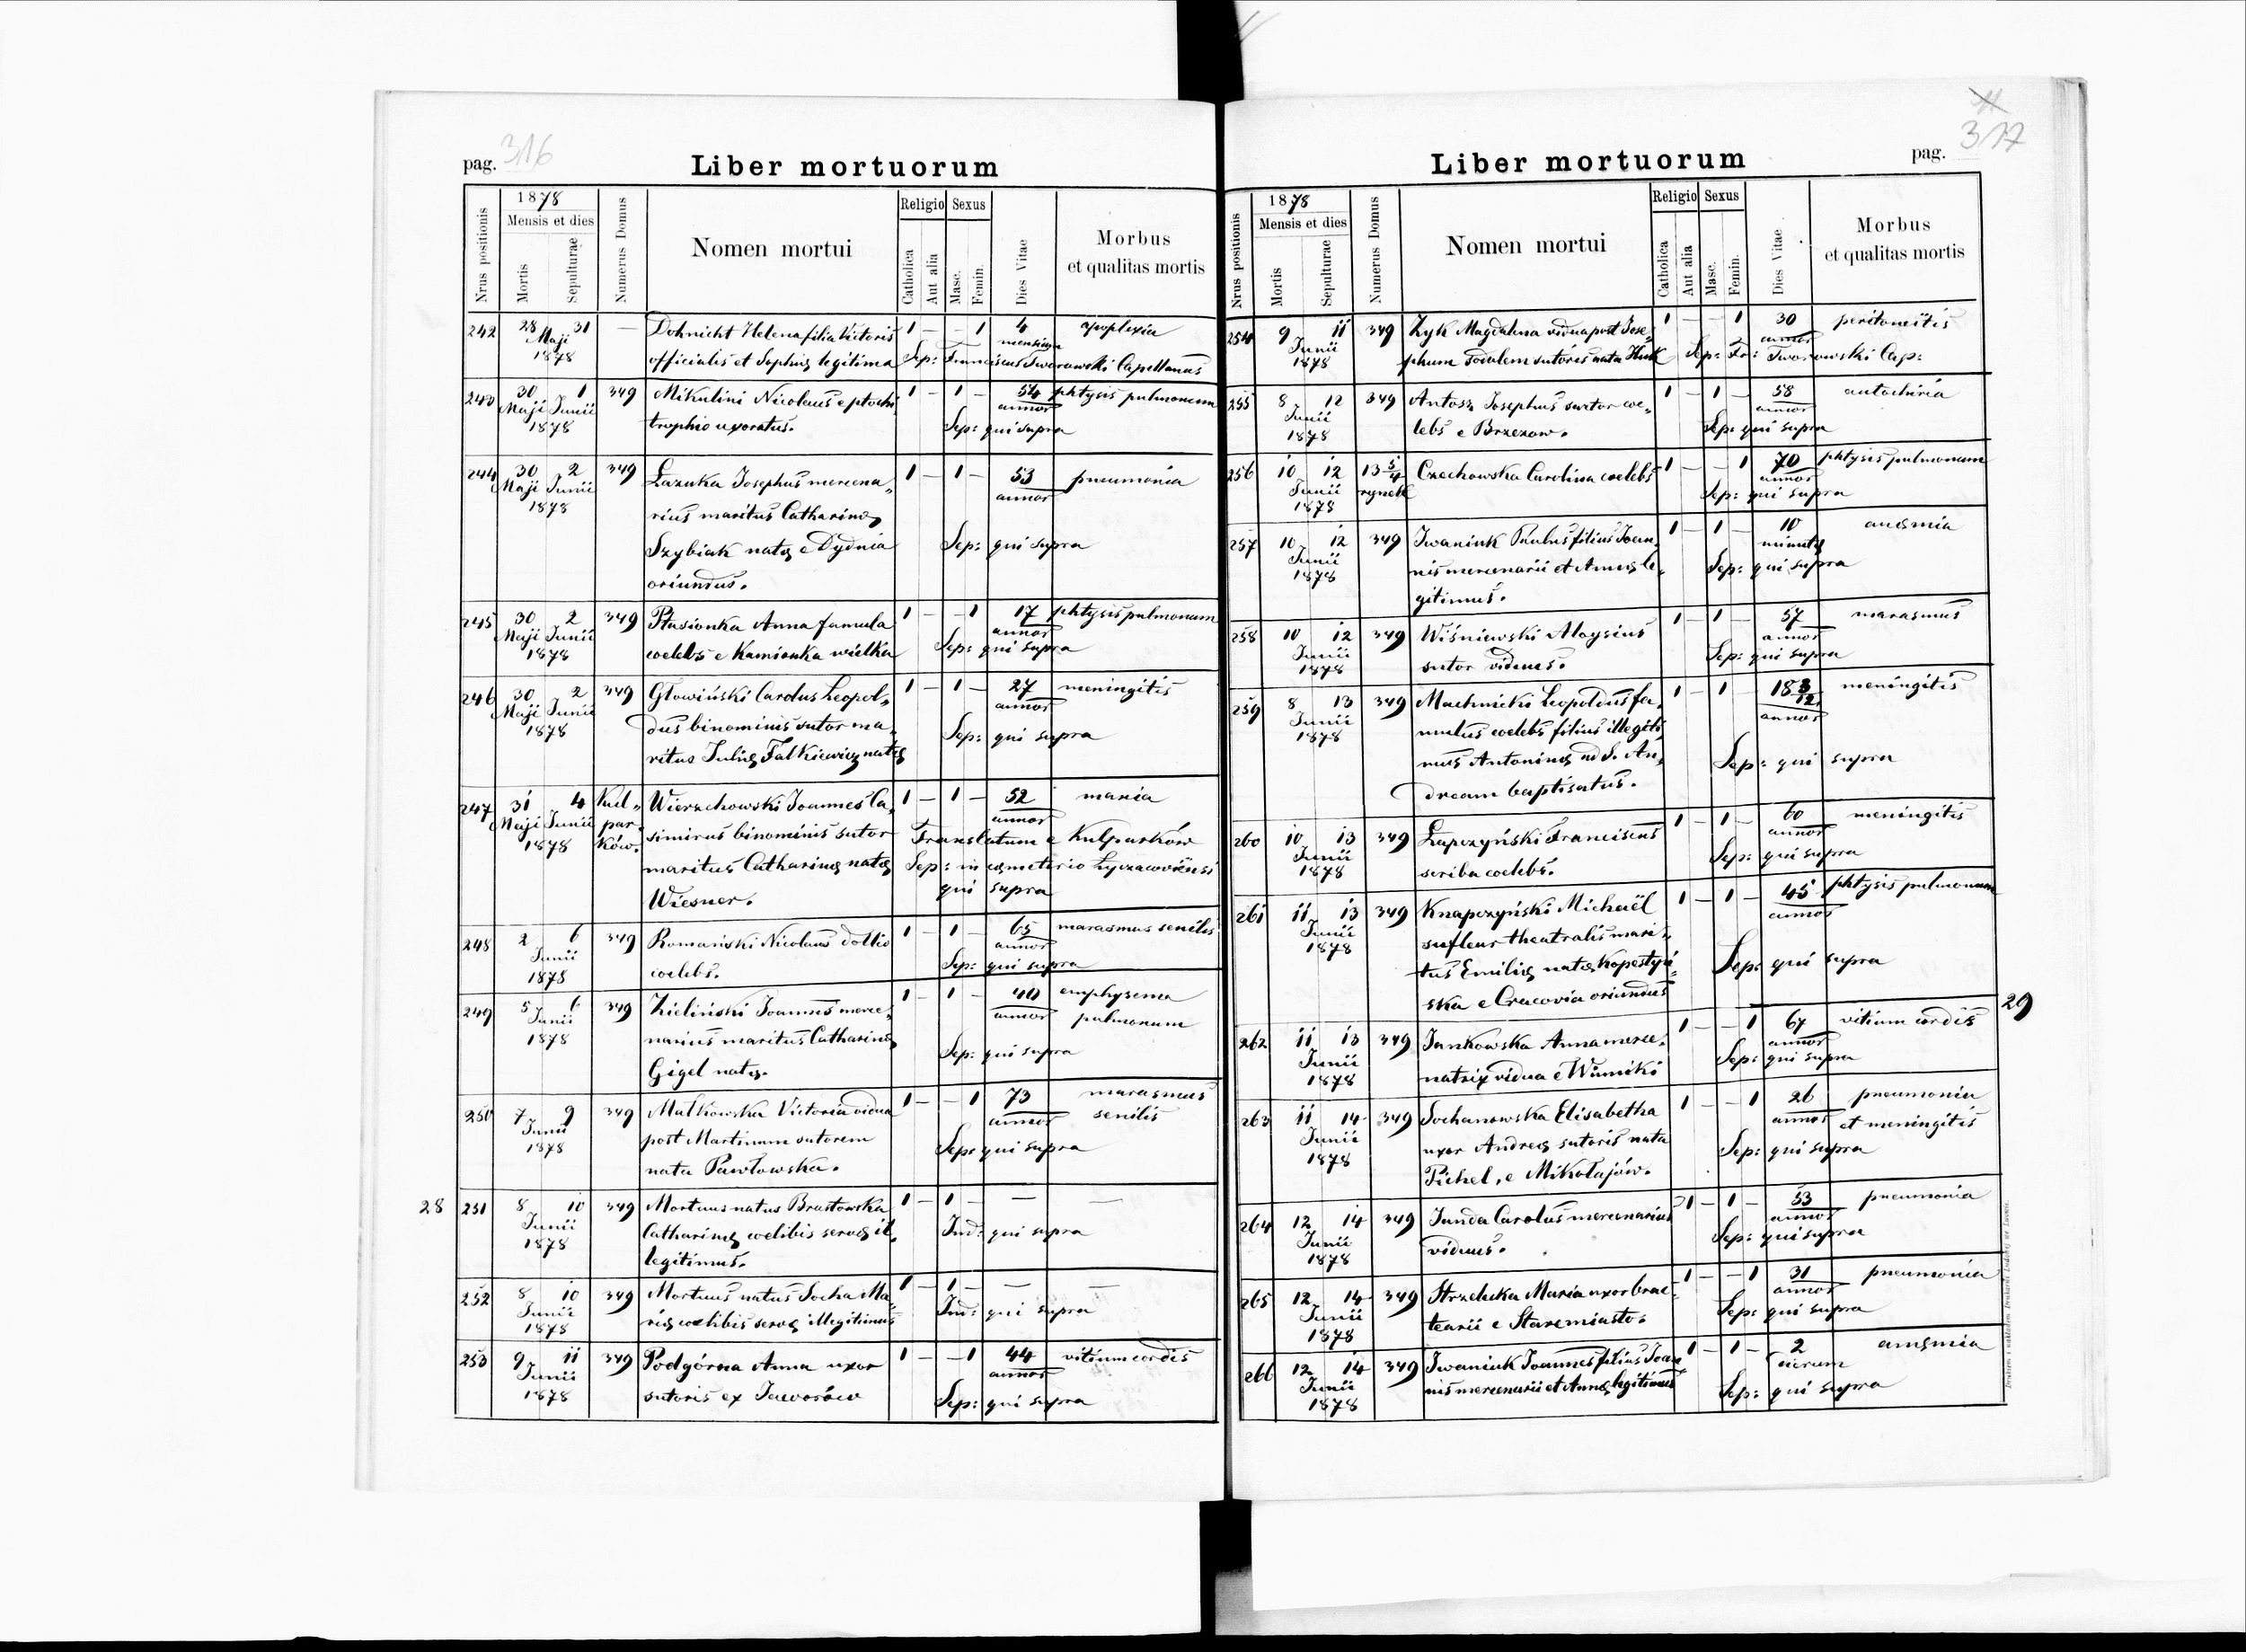 pag. 316
Liber mortuorum
Nrus positionis
1878
Mensis et dies
Mortis
Sepulturae
Numerus Domus
Nomen mortui
Religio
Catholica
Aut alia
Sexus
Masc.
Femin.
Dies Vitae
Morbus
et qualitas mortis
242 28 31 — Doknicht Helena filia Victoris 1 — — 1 4 apoplexia
Maji mensium
1878 officialis et Sophiæ legitima Sep: Franciscus Tworowski Capellanus
243 30 1 349 Mikulini Nicolaus e ptocho 1 — 1 — 54 phtysis pulmonum
Maji Junii annor
1878 trophio uxoratus. Sep: qui supra
244 30 2 349 Łazuka Josephus mercena„ 1 — 1 — 53 pneumonia
Maji Junii annor
1878 rius maritus Catharinæ
Szybiak natæ e Dydnia Sep: qui supra
oriundus.
245 30 2 349 Ptasionka Anna famula 1 — — 1 17 phtysis pulmonum
Maji Junii annor
1878 coelebs e Kamionka wielka Sep: qui supra
246 30 2 349 Głowiński Carolus Leopol„ 1 — 1 — 27 meningitis
Maji Junii annor
1878 dus binominis sutor ma„ Sep: qui supra
ritus Juliæ Falkiewicz natæ
247 31 4 Kul„ Wierzchowski Joannes Ca„ 1 — 1 — 52 mania
Maji Junii par annor
1878 ków. simirus binominis sutor Translatum e Kulparków
maritus Catharinæ natæ Sep: in cæmeterio Lyczacoviensi
Wiesner. qui supra
248 2 6 349 Romański Nicolaus dollio 1 — 1 — 65 marasmus senilis
Junii annor
1878 coelebs. Sep: qui supra
249 5 6 349 Zieliński Joannes merce„ 1 — 1 — 40 emphysema
Junii annor pulmonum
1878 narius maritus Catharinæ Sep: qui supra
Gigel natæ.
250 7 9 349 Malkowska Victoria vidua 1 — — 1 73 marasmus
Junii annor senilis
1878 post Martinum sutorem Sep: qui supra
nata Pawłowska.
28 251 8 10 349 Mortuus natus Brustowska 1 — 1 — — —
Junii Catharinæ coelibis servæ il„ Ind: qui supra
1878 legitimus.
252 8 10 349 Mortuus natus Socha Ma„ 1 — 1 — — —
Junii Ind: qui supra
1878 riæ coelibis servæ illegitimus
253 9 11 349 Podgórna Anna uxor 1 — — 1 44 vitium cordis
Junii annor
1878 sutoris ex Jaworów Sep: qui supra
Liber mortuorum
pag. 317
Nrus positionis
1878
Mensis et dies
Mortis
Sepulturae
Numerus Domus
Nomen mortui
Religio
Catholica
Aut alia
Sexus
Masc.
Femin.
Dies Vitae
Morbus
et qualitas mortis
254 9 11 349 Zyk Magdalena vidua post Jose„ 1 — — 1 30 peritoneitis
Junii annor
1878 phum sodalem sutoris nata Huk Sep: Fr: Tworowski Cap:
255 8 12 349 Antosz Josephus sartor coe„ 1 — 1 — 58 autochiria
Junii annor
1878 lebs e Brzezow. Sep: qui supra
256 10 12 13 5/4 Czechowska Carolina coelebs 1 — — 1 70 phtysis pulmonum
Junii rynek annor
1878 Sep: qui supra
257 10 12 349 Iwaniuk Paulus filius Joan„ 1 — 1 — 10 anæmia
Junii minutæ
1878 nis mercenarii et Annæ le„ Sep: qui supra
gitimus.
258 10 12 349 Wiśniewski Aloysius 1 — 1 — 57 marasmus
Junii annor
1878 sutor viduus. Sep: qui supra
259 8 13 349 Machnicki Leopoldus fa„ 1 — 1 — 18 3/12 meningitis
Junii annor
1878 mulus coelebs filius illegiti„
mus Antoninæ ad S. An„ Sep: qui supra
dream baptisatus.
260 10 13 349 Łapczyński Franciscus 1 — 1 — 60 meningitis
Junii annor
1878 scriba coelebs. Sep: qui supra
261 11 13 349 Knapczyński Michaël 1 — 1 — 45 phtysis pulmonum
Junii annor
1878 sufleur theatralis mari„
tus Emiliæ natæ Kopestyń„ Sep: qui supra
ska e Cracovia oriundus
29
262 11 13 349 Jankowska Anna merce„ 1 — — 1 67 vitium cordis
Junii annor
1878 natrix vidua e Winniki Sep: qui supra
263 11 14 349 Sochanowska Elisabetha 1 — — 1 26 pneumonia
Junii annor et meningitis
1878 uxor Andreæ sutoris nata Sep: qui supra
Pichel, e Mikołajów.
264 12 14 349 Janda Carolus mercenarius 1 — 1 — 53 pneumonia
Junii annor
1878 viduus. Sep: qui supra
265 12 14 349 Strzelecka Maria uxor brac„ 1 — — 1 31 pneumonia
Junii annor
1878 tearii e Staremiasto. Sep: qui supra
266 12 14 349 Iwaniuk Joannes filius Joan 1 — 1 — 2 anæmia
Junii dierum
1878 nis mercenarii et Annæ legitimus Sep: qui supra